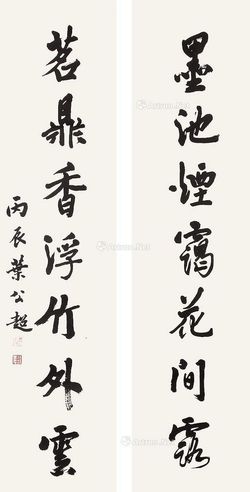 墨池煙靄花間露
茗鼎香浮竹外雲
丙辰葉公超